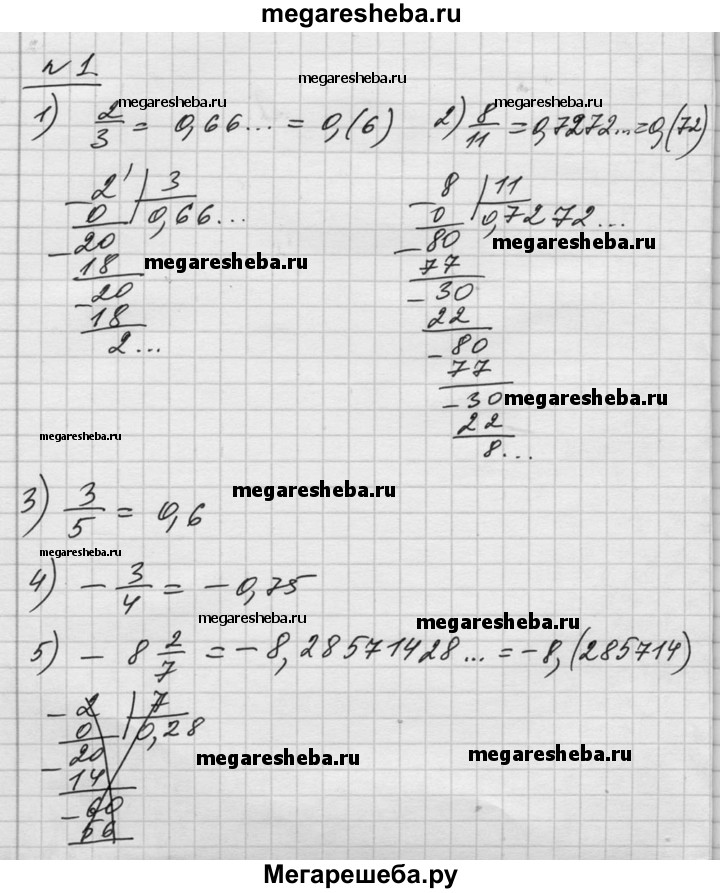 megaresheba.ru
№1.
megaresheba.ru
megaresheba.ru megaresheba.ru
1) 2/3 = 0,66... = 0,(6) 2) 8/11 = 0,7272... = 0,(72)
- 2' | 3
0 | 0,66...
- 20
18
- 20
18
2...
megaresheba.ru
- 8 | 11
0 | 0,7272...
- 80
77
- 30
22
- 80
77
- 30
22
8...
megaresheba.ru
megaresheba.ru
megaresheba.ru
megaresheba.ru
3) 3/5 = 0,6
megaresheba.ru
4) - 3/4 = - 0,75
megaresheba.ru megaresheba.ru
5) - 8 2/7 = - 8,28571428... = - 8,(285714)
- 2 | 7
0 | 0,28
- 20
14
- 60
56
megaresheba.ru megaresheba.ru
Мегарешеба.ру